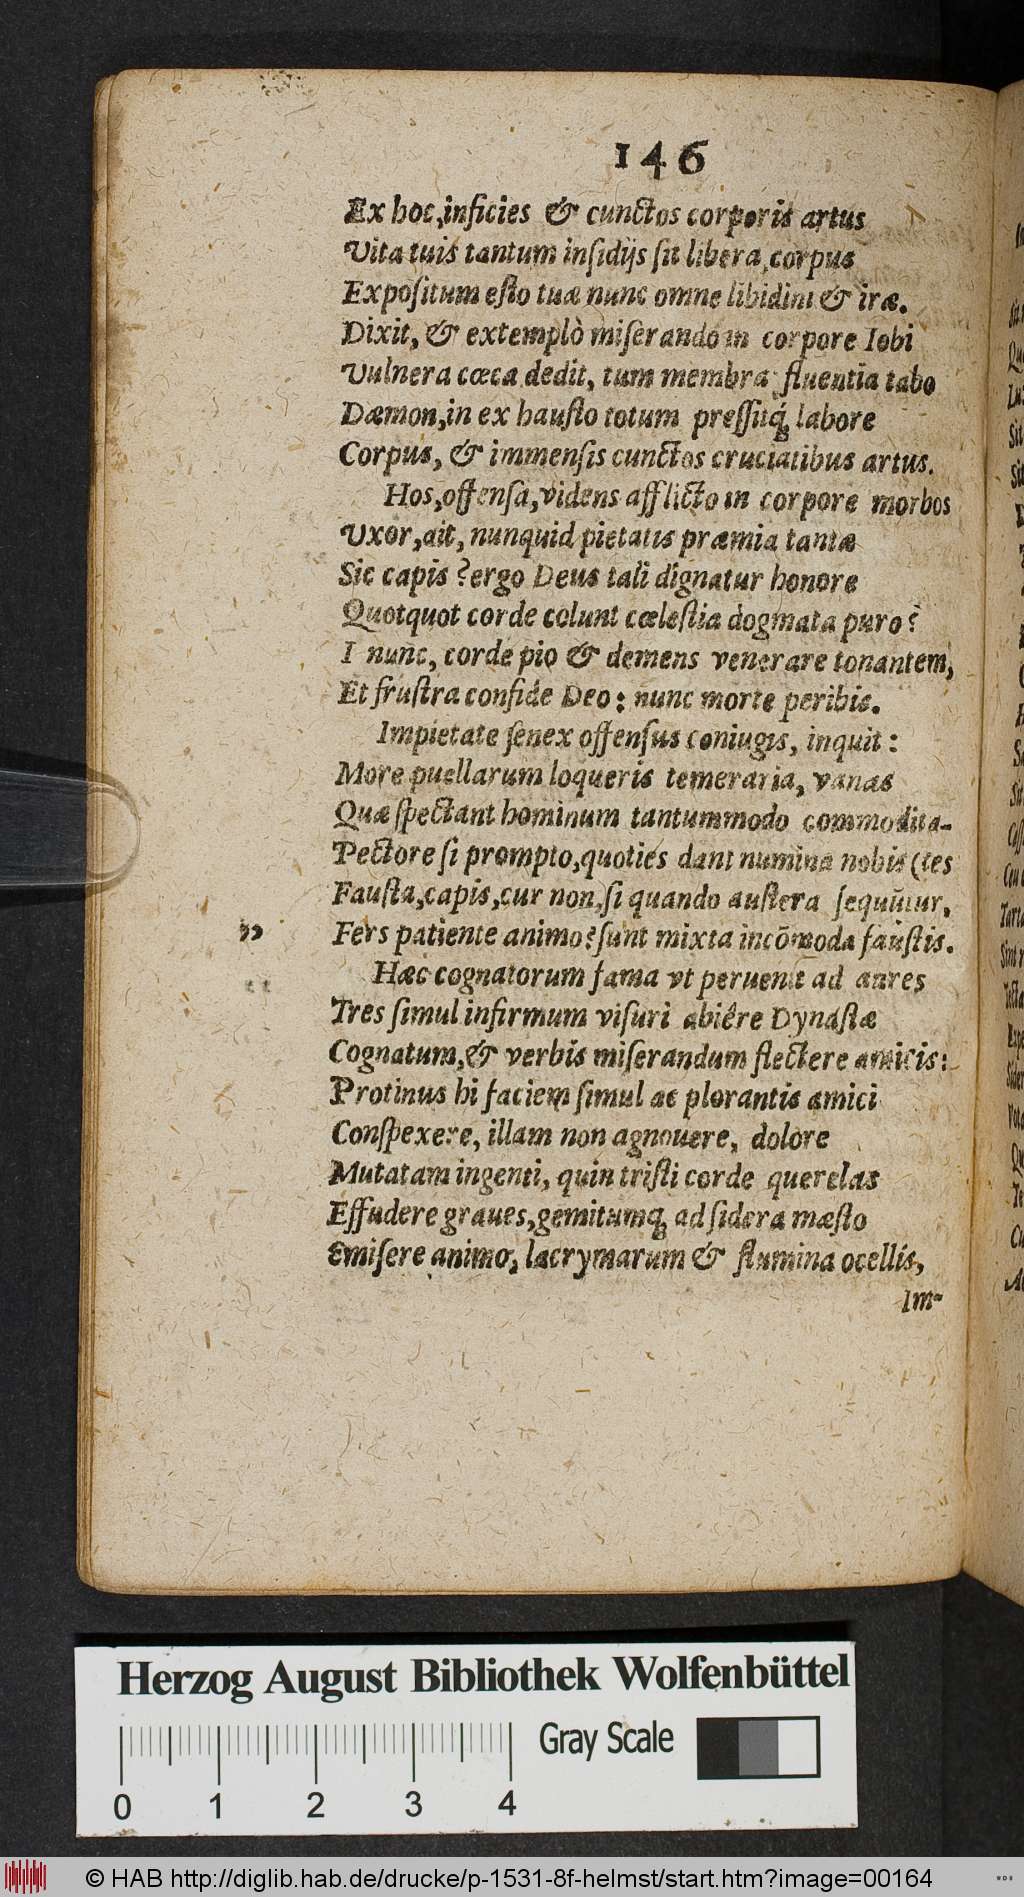 146
Ex hoc, inficies & cunctos corporis artus
Vita tuis tantum insidijs sit libera, corpus
Expositum esto tuæ nunc omne libidini & iræ.
Dixit, & extemplò miserando in corpore Iobi
Vulnera cœca dedit, tum membra fluentia tabo
Dæmon, in ex hausto totum pressitq́; labore
Corpus, & immensis cunctos cruciatibus artus.
Hos, offensa, videns afflicto in corpore morbos
Uxor, ait, nunquid pietatis præmia tantæ
Sic capis? ergo Deus tali dignatur honore
Quotquot corde colunt cœlestia dogmata puro?
I nunc, corde pio & demens venerare tonantem,
Et frustra confide Deo: nunc morte peribis.
Impietate senex offensus coniugis, inquit:
More puellarum loqueris temeraria, vanas
Quæ spectant hominum tantummodo commodita-
Pectore si prompto, quoties dant numina nobis (tes
Fausta, capis, cur non, si quando austera sequũtur,
" Fers patiente animo? sunt mixta incōmoda faustis.
Hæc cognatorum fama vt peruenit ad aures
Tres simul infirmum visuri abiêre Dynastæ
Cognatum, & verbis miserandum flectere amicis:
Protinus hi faciem simul ac plorantis amici
Conspexere, illam non agnouere, dolore
Mutatam ingenti, quin tristi corde querelas
Effudere graues, gemitumq; ad sidera mæsto
Emisere animo, lacrymarum & flumina ocellis,
Im-
Herzog August Bibliothek Wolfenbüttel
Gray Scale
0 1 2 3 4
© HAB http://diglib.hab.de/drucke/p-1531-8f-helmst/start.htm?image=00164